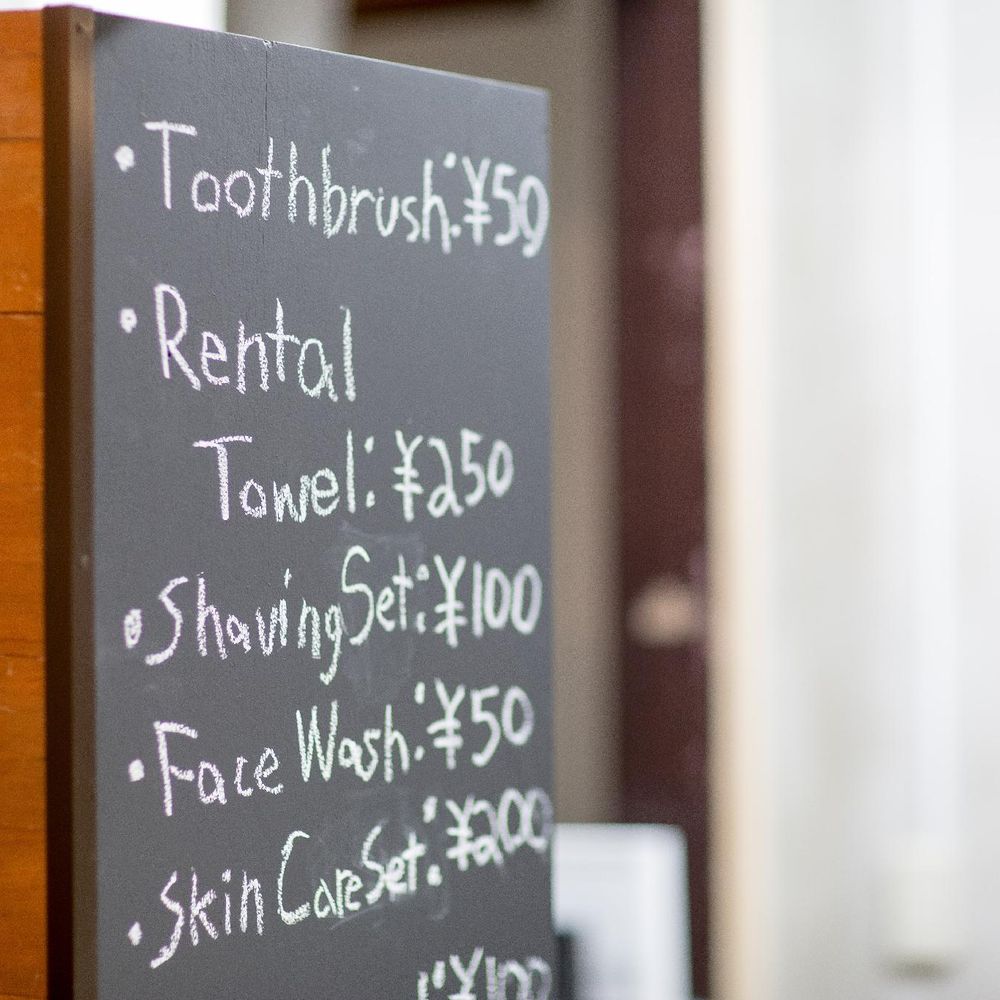 • Toothbrush: ¥50
• Rental
Towel: ¥250
• Shaving Set: ¥100
• Face Wash: ¥50
• Skin Care Set: ¥200
: ¥100